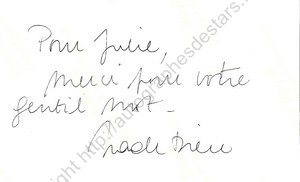 Pour Julie,
merci pour votre
gentil mot -
ght http://autographesdestars.